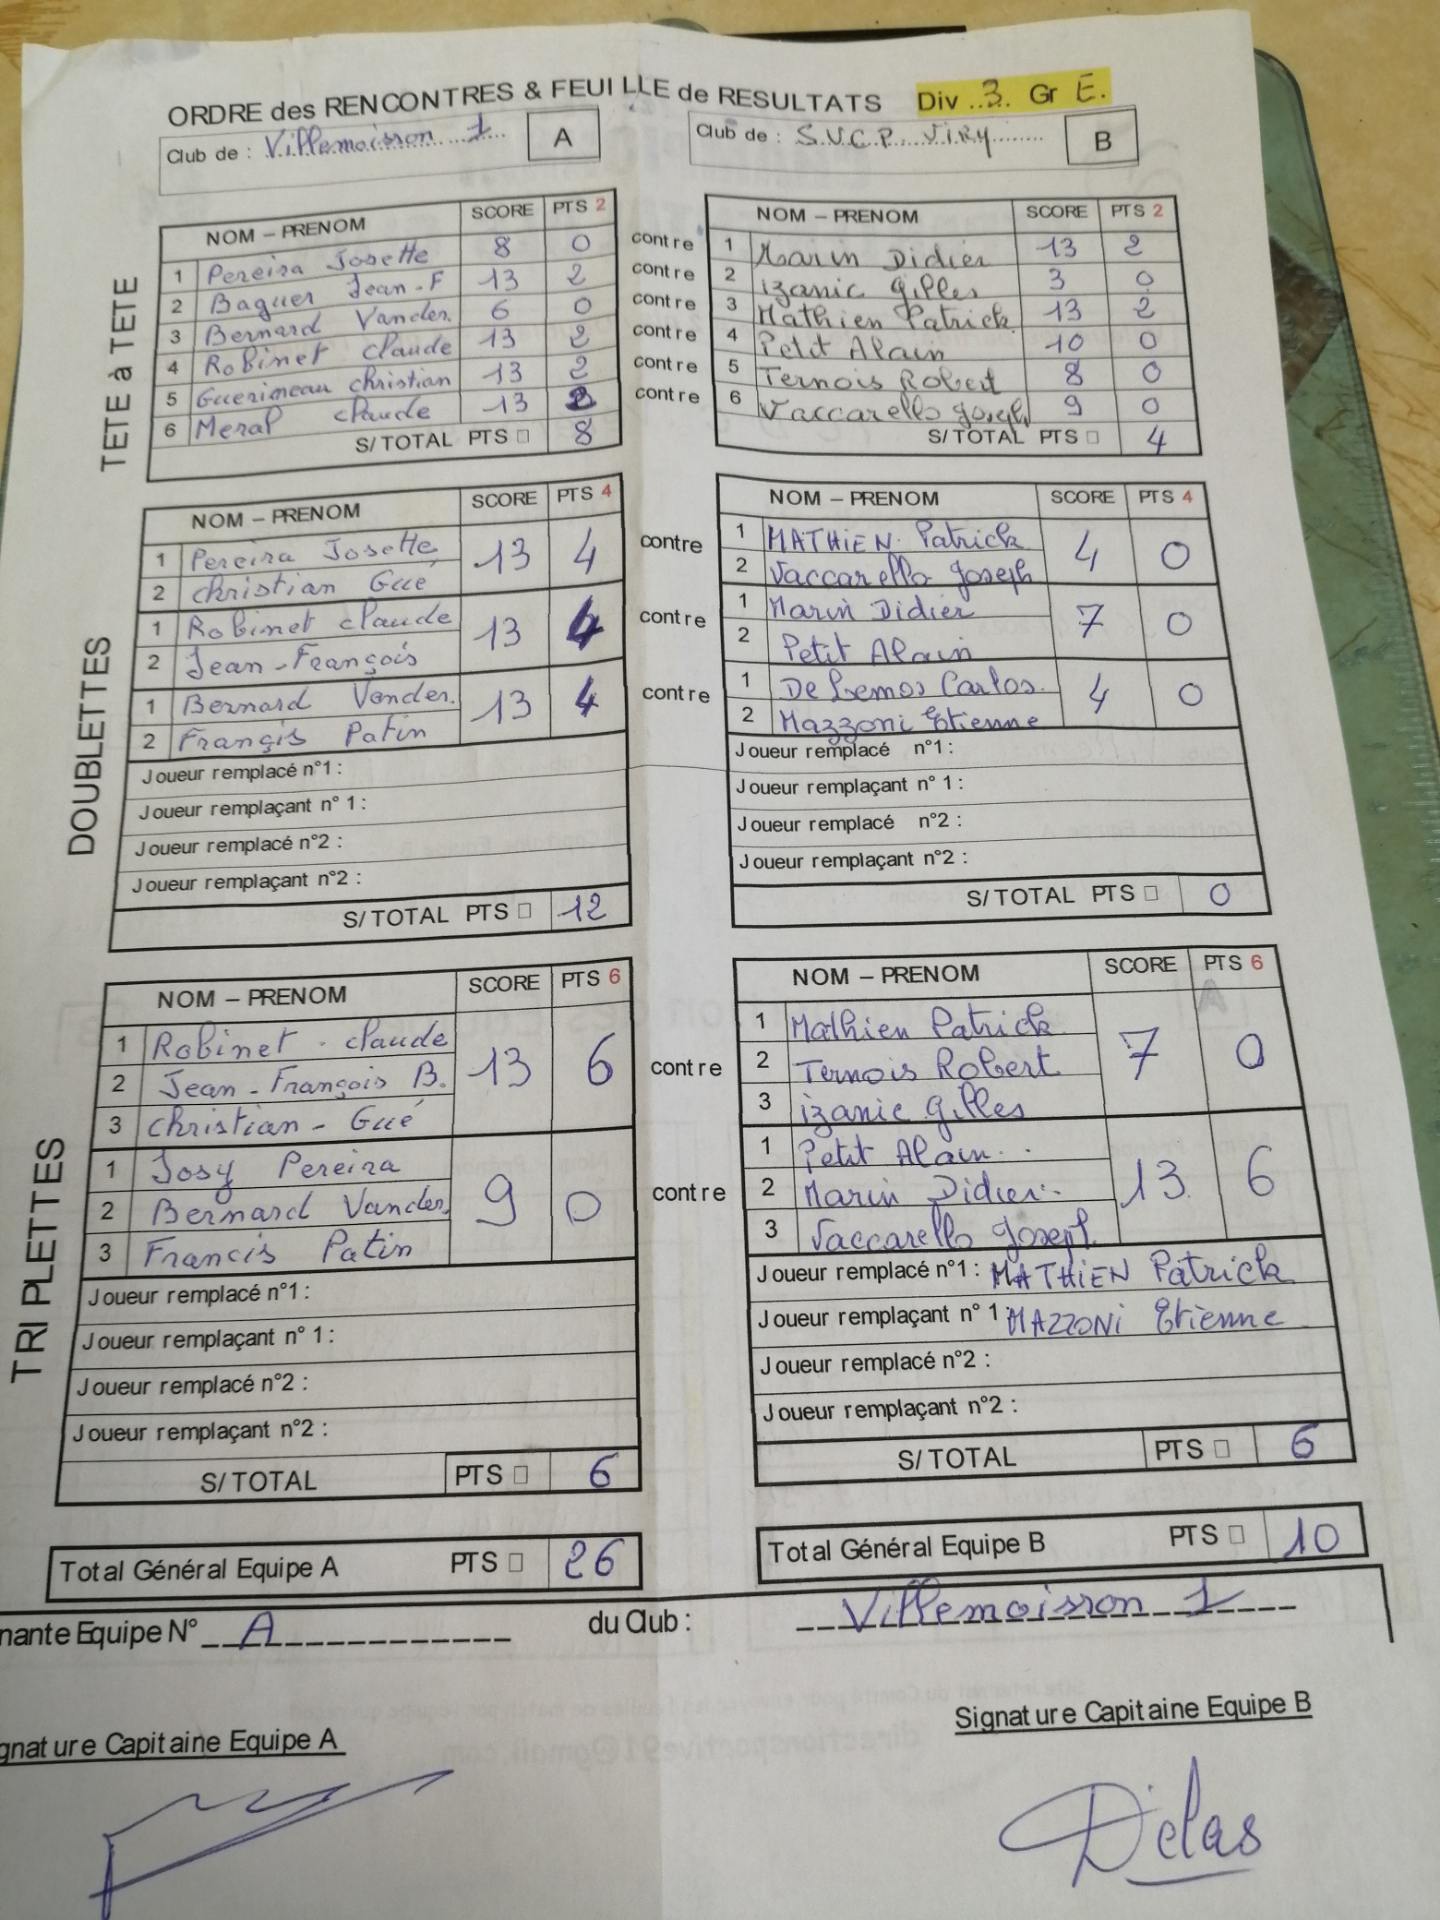 ORDRE des RENCONTRES & FEUILLE de RESULTATS Div ..3.. Gr E.
Club de : Villemoisson 1 A
Club de : S.V.C.P. Viry B
TETE à TETE
NOM – PRENOM SCORE PTS 2 NOM – PRENOM SCORE PTS 2
1 Pereira Josette 8 0 contre 1 Marin Didier 13 2
2 Baguer Jean-F 13 2 contre 2 izanic Gilles 3 0
3 Bernard Vander. 6 0 contre 3 Mathien Patrick 13 2
4 Robinet claude 13 2 contre 4 Petit Alain 10 0
5 Guerineau christian 13 2 contre 5 Ternois Robert 8 0
6 Meral claude 13 2 contre 6 Vaccarello Joseph 9 0
S/TOTAL PTS 8 S/TOTAL PTS 4
DOUBLETTES
NOM – PRENOM SCORE PTS 4 NOM – PRENOM SCORE PTS 4
1 Pereira Josette 13 4 contre 1 MATHIEN Patrick 4 0
2 christian Gué 2 Vaccarello Joseph
1 Robinet claude 13 4 contre 1 Marin Didier 7 0
2 Jean-François 2 Petit Alain
1 Bernard Vander. 13 4 contre 1 De Lemos Carlos. 4 0
2 Françis Patin 2 Mazzoni Etienne
Joueur remplacé n°1 : Joueur remplacé n°1 :
Joueur remplaçant n° 1 : Joueur remplaçant n° 1 :
Joueur remplacé n°2 : Joueur remplacé n°2 :
Joueur remplaçant n°2 : Joueur remplaçant n°2 :
S/TOTAL PTS 12 S/TOTAL PTS 0
TRIPLETTES
NOM – PRENOM SCORE PTS 6 NOM – PRENOM SCORE PTS 6
1 Robinet - claude 13 6 contre 1 Mathien Patrick 7 0
2 Jean-François B. 2 Ternois Robert
3 christian - Gué 3 izanic Gilles
1 Josy Pereira 9 0 contre 1 Petit Alain 13 6
2 Bernard Vander. 2 Marin Didier
3 Francis Patin 3 Vaccarello Joseph
Joueur remplacé n°1 : Joueur remplacé n°1 : MATHIEN Patrick
Joueur remplaçant n° 1 : Joueur remplaçant n° 1 : MAZZONI Etienne
Joueur remplacé n°2 : Joueur remplacé n°2 :
Joueur remplaçant n°2 : Joueur remplaçant n°2 :
S/TOTAL PTS 6 S/TOTAL PTS 6
Total Général Equipe A PTS 26 Total Général Equipe B PTS 10
nante Equipe N° A du Club : Villemoisson 1
gnature Capitaine Equipe A Signature Capitaine Equipe B
Delas